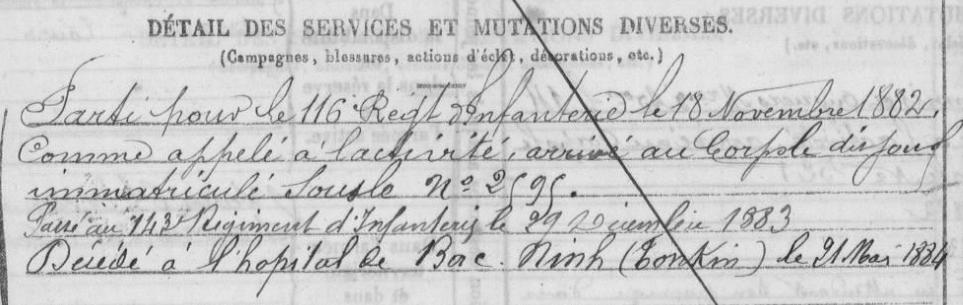 DÉTAIL DES SERVICES ET MUTATIONS DIVERSES.
(Campagnes, blessures, actions d'éclat, décorations, etc.)
Parti pour le 116e Regt d'Infanterie le 18 Novembre 1882,
Comme appelé à l'activité, arrivé au Corps le dit jour
immatriculé sous le No 2595.
Passé au 143e Régiment d'Infanterie le 29 Décembre 1883
Décédé à l'hopital de Bac-Ninh (Tonkin) le 21 Mai 1884